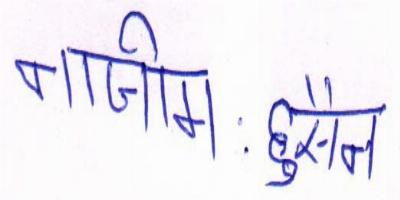 नाजीम : हुसैन